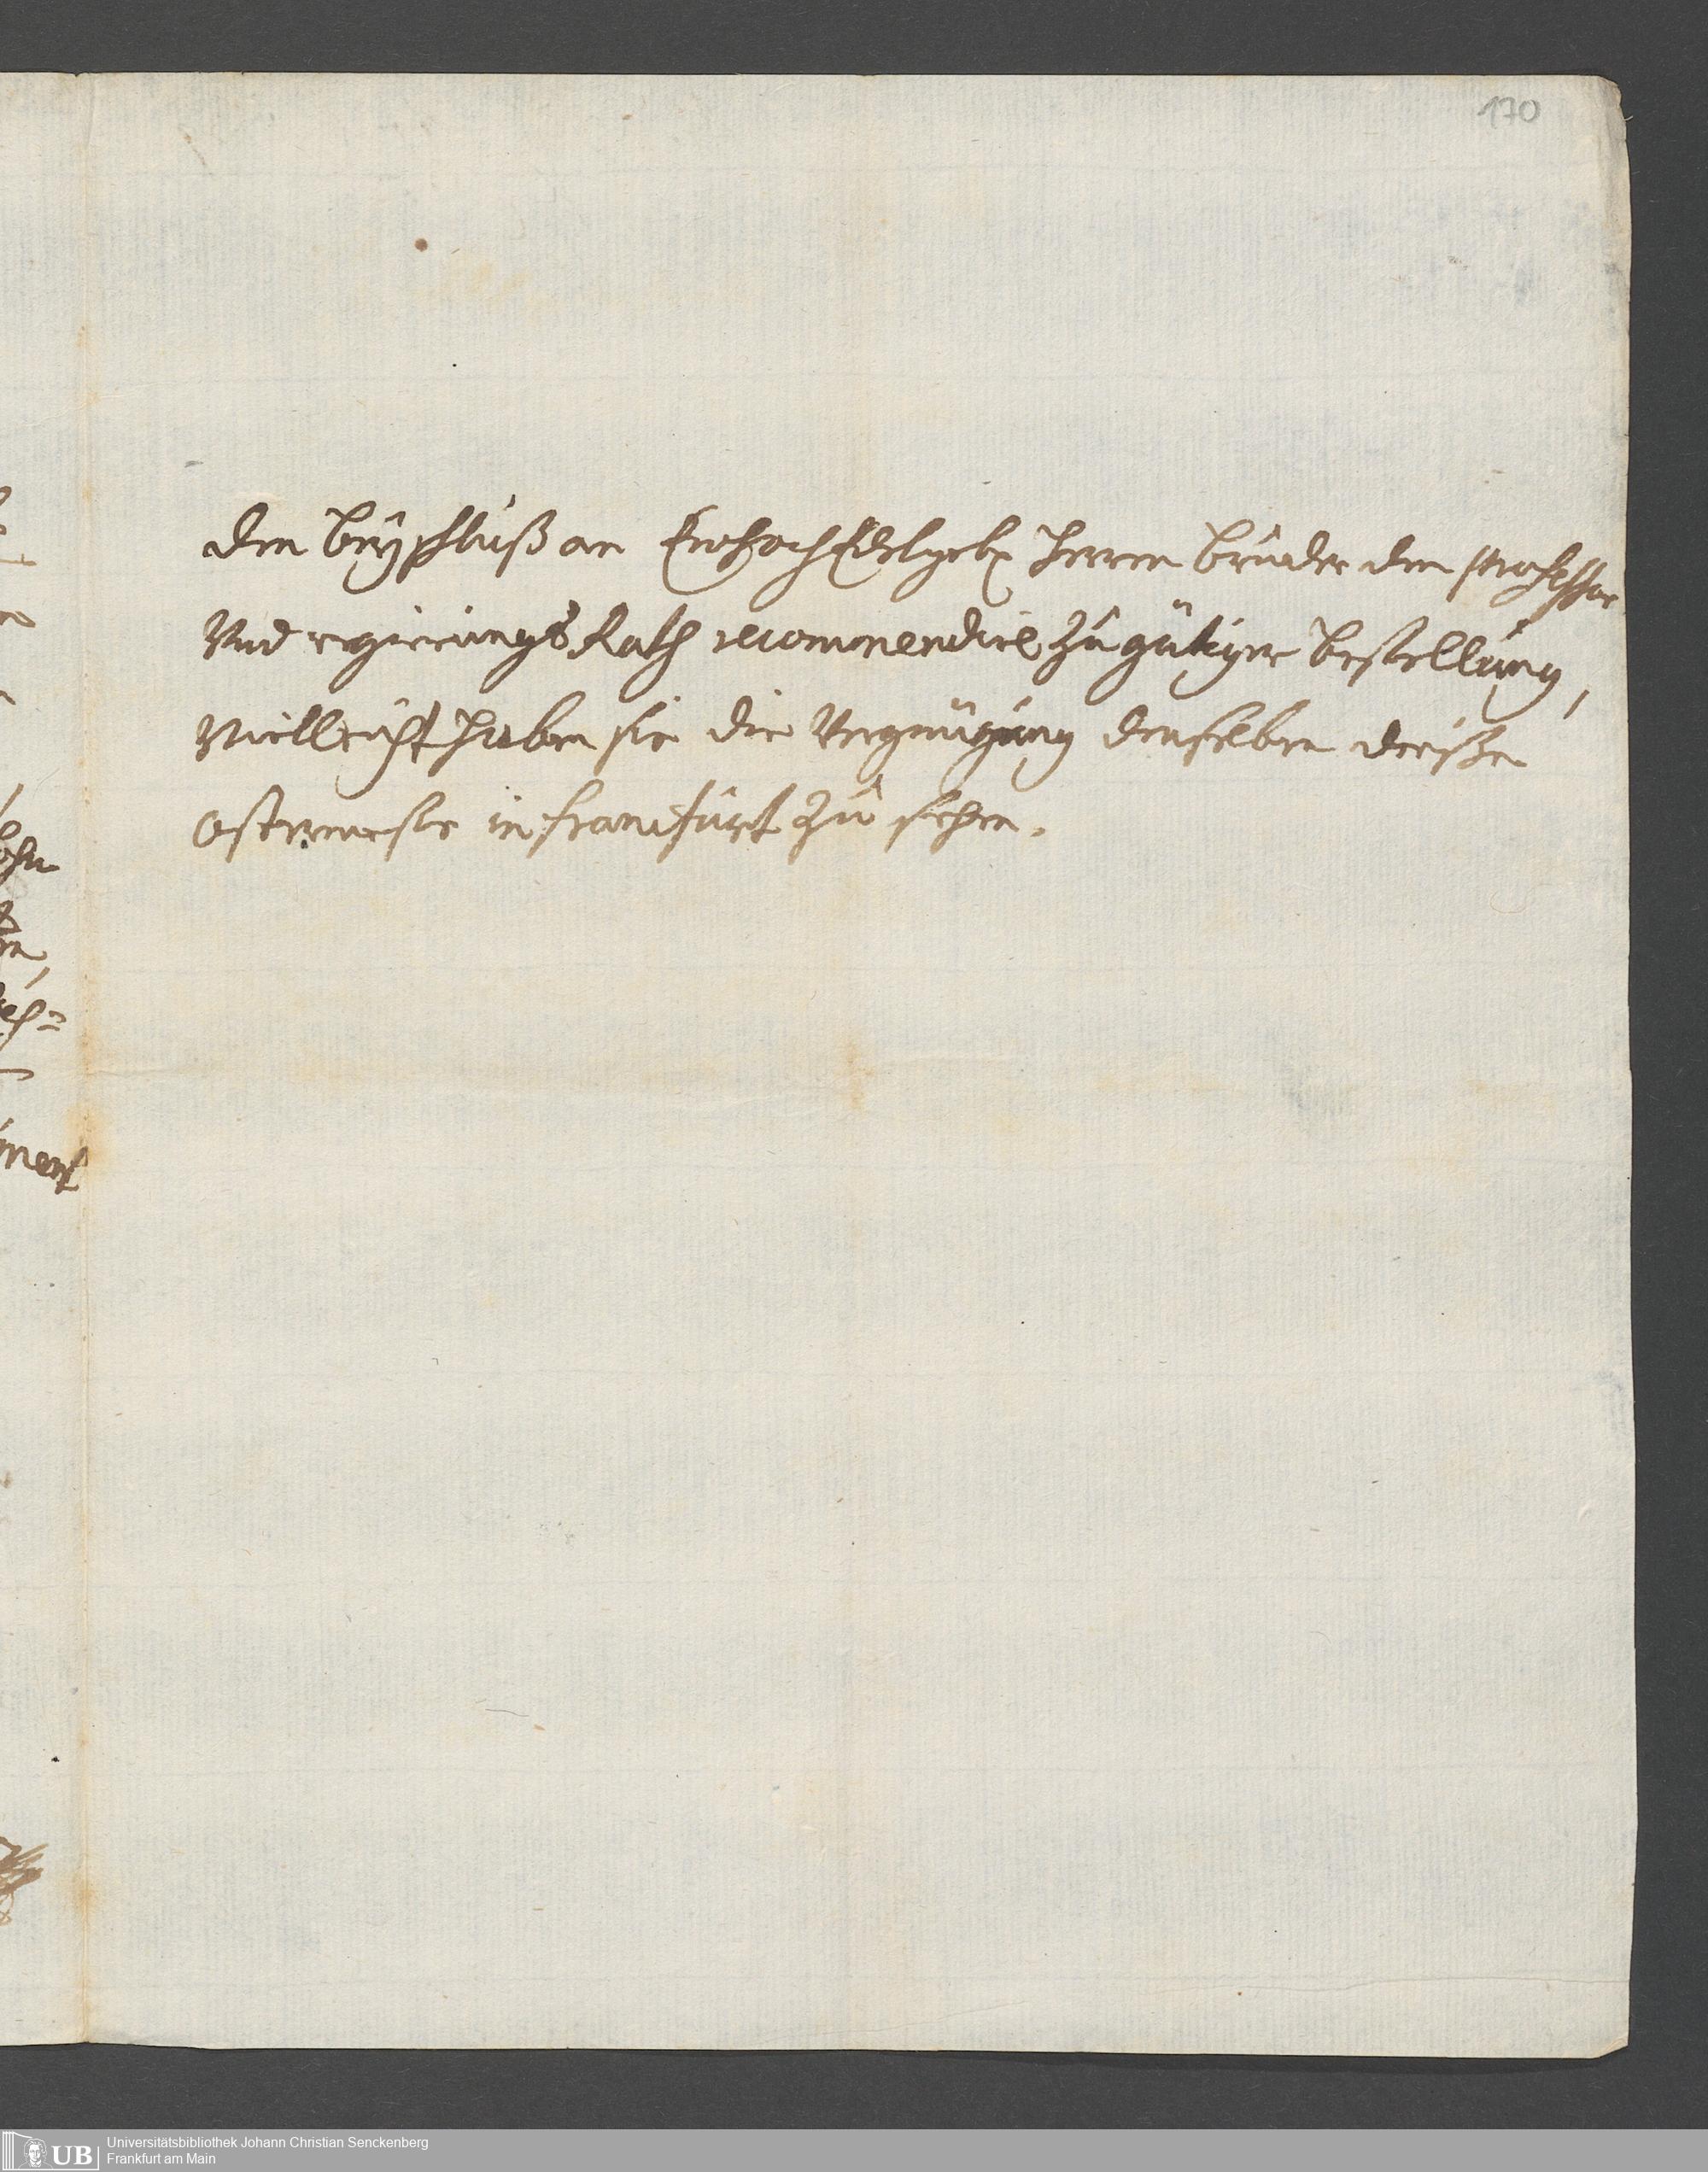 170
den beyschluß an Ew hoch Edelgeb Herren bruder den professor
Und regierungs Rath recommendire zu gütiger bestellung,
Vielleicht haben sie die Vergnügung denselben dieße
Ostermeße in franckfurt zu sehen.
ment
UB
Universitätsbibliothek Johann Christian Senckenberg
Frankfurt am Main